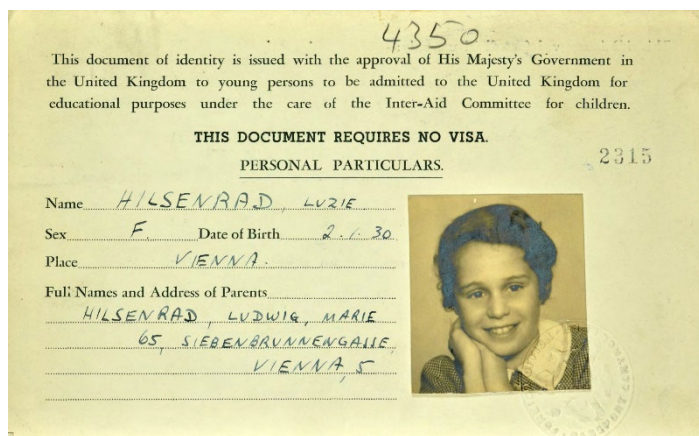 4350
This document of identity is issued with the approval of His Majesty's Government in
the United Kingdom to young persons to be admitted to the United Kingdom for
educational purposes under the care of the Inter-Aid Committee for children.
THIS DOCUMENT REQUIRES NO VISA.
PERSONAL PARTICULARS.
2315
Name HILSENRAD, LUZIE.
Sex F. Date of Birth 2.1.30
Place VIENNA.
Full Names and Address of Parents
HILSENRAD, LUDWIG, MARIE
65, SIEBENBRUNNENGASSE,
VIENNA, 5